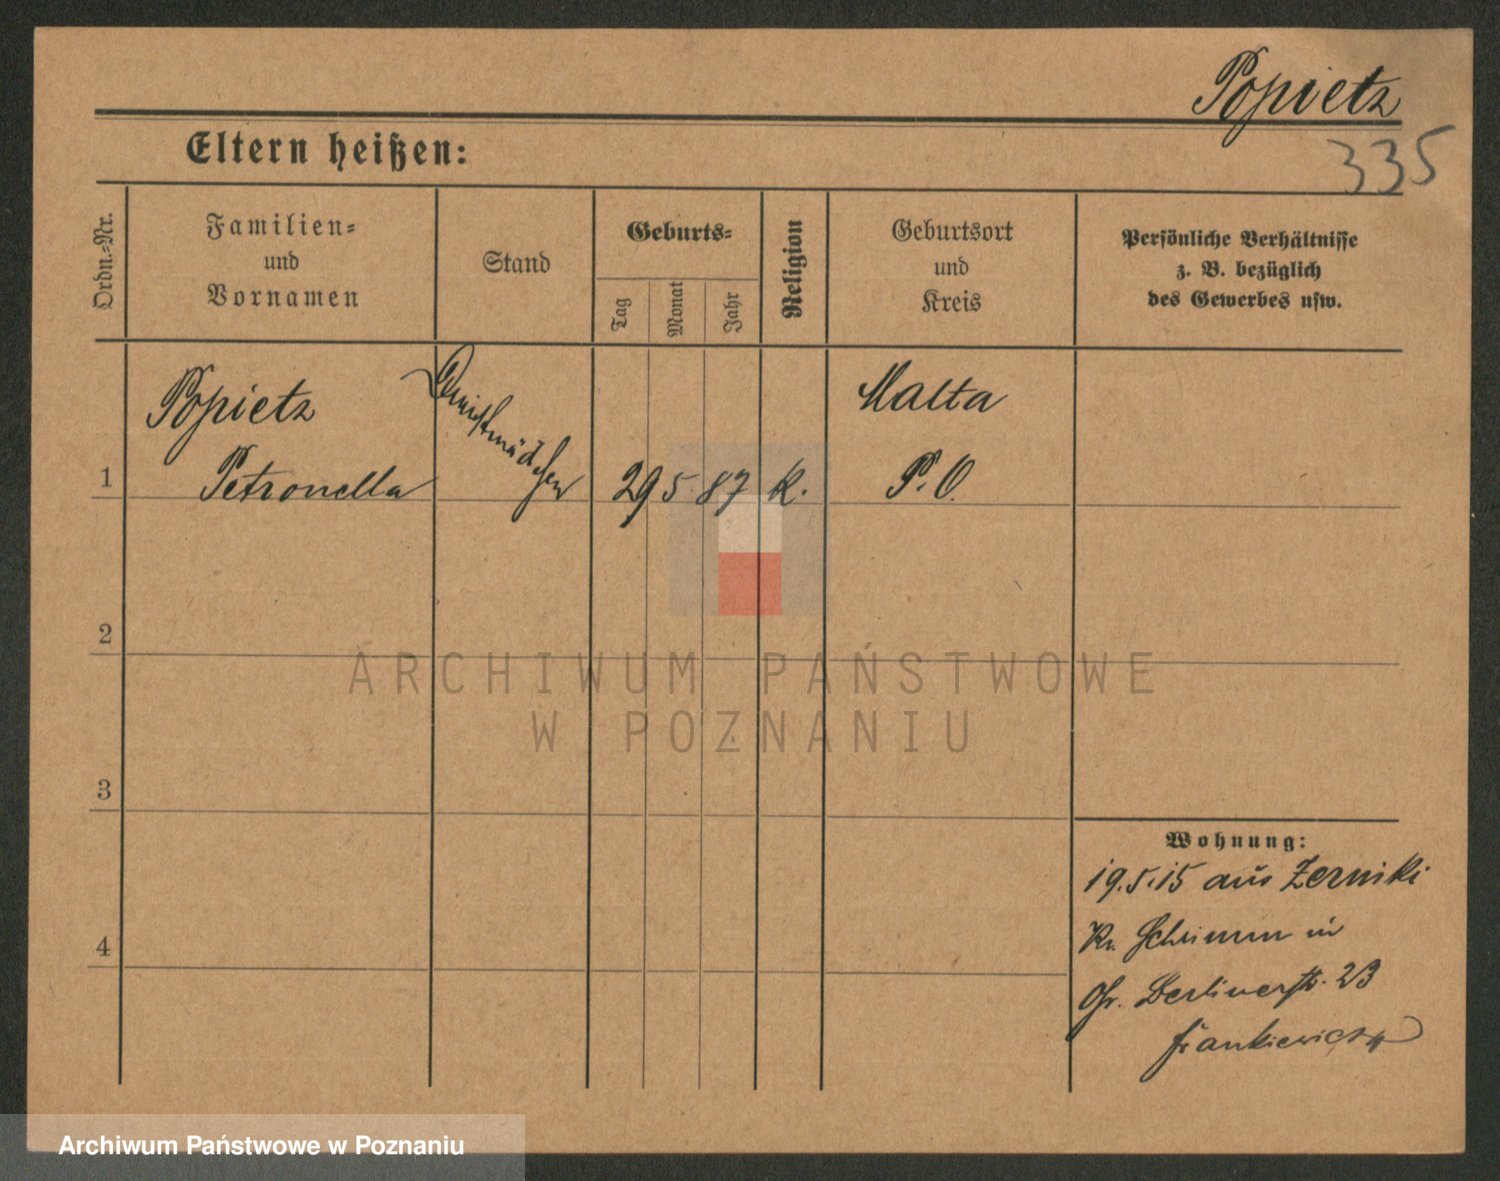 Popietz
335
Eltern heißen:
Ordn.-Nr.
Familien-
und
Vornamen
Stand
Geburts-
Tag
Monat
Jahr
Religion
Geburtsort
und
Kreis
Persönliche Verhältnisse
z. B. bezüglich
des Gewerbes usw.
1
Popietz
Petronella
Dienstmädchen
29 5 87
K.
Malta
P. O.
2
3
4
Wohnung:
19.5.15 aus Zerniki
Kr. Schrimm in
Gr. Berlinerstr. 23
Frankiewicz
ARCHIWUM PAŃSTWOWE
W POZNANIU
Archiwum Państwowe w Poznaniu